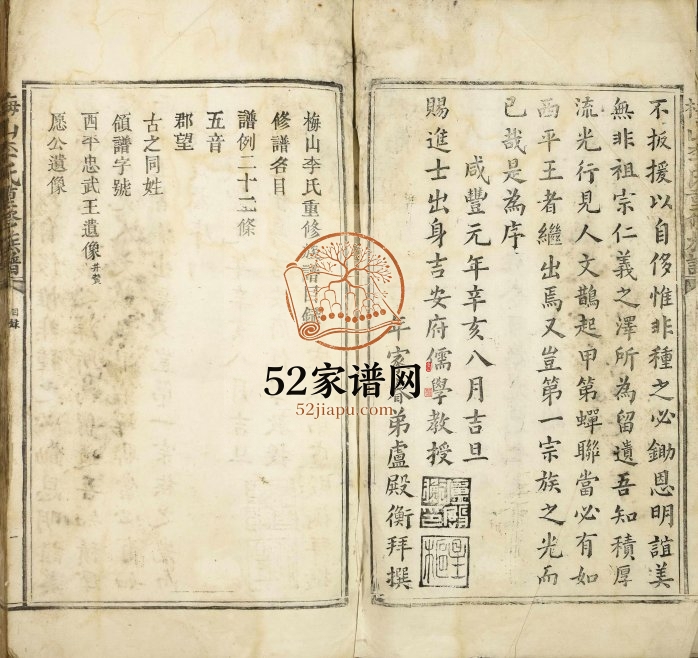 不扳援以自侈惟非種之必鋤恩明誼美
無非祖宗仁義之澤所為留遺吾知積厚
流光行見人文鵲起甲第蟬聯當必有如
西平王者繼出焉又豈第一宗族之光而
已哉是為序
咸豐元年辛亥八月吉旦
賜進士出身吉安府儒學教授
年家眷弟盧殿衡拜撰
梅山李氏重修族譜目錄
修譜名目
譜例二十二條
五音
郡望
古之同姓
領譜字號
西平忠武王遺像 并贊
愿公遺像
梅山李氏重修族譜
目錄
一
52家谱网
52jiapu.com